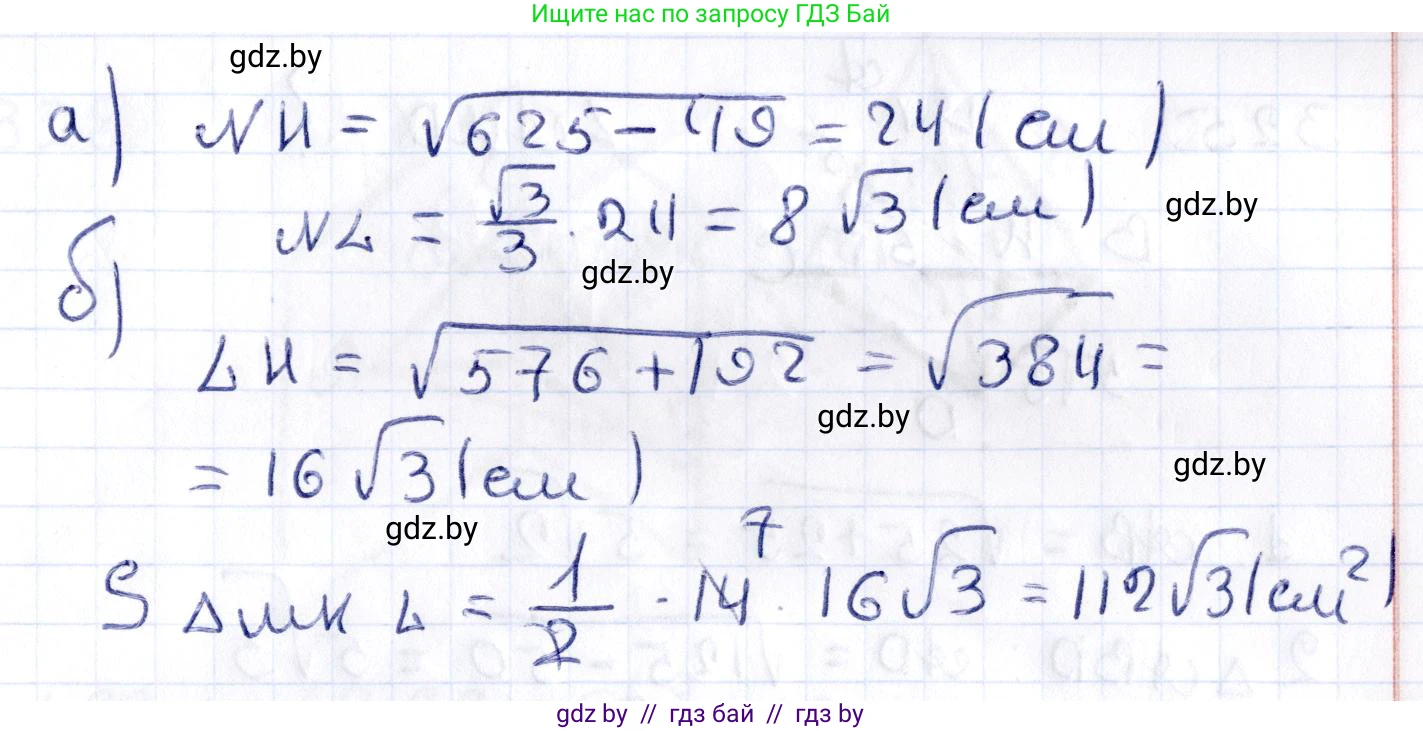 Ищите нас по запросу ГДЗ Бай
gdz.by
а) NH = √625 − 49 = 24 (см)
NL = √3/3 · 24 = 8 √3 (см)
gdz.by
gdz.by
б)
LH = √576 + 192 = √384 =
gdz.by
= 16 √3 (см)
gdz.by
gdz.by
S △MKL = 1/2 · 14 7 · 16 √3 = 112 √3 (см²)
gdz.by // гдз бай // гдз by